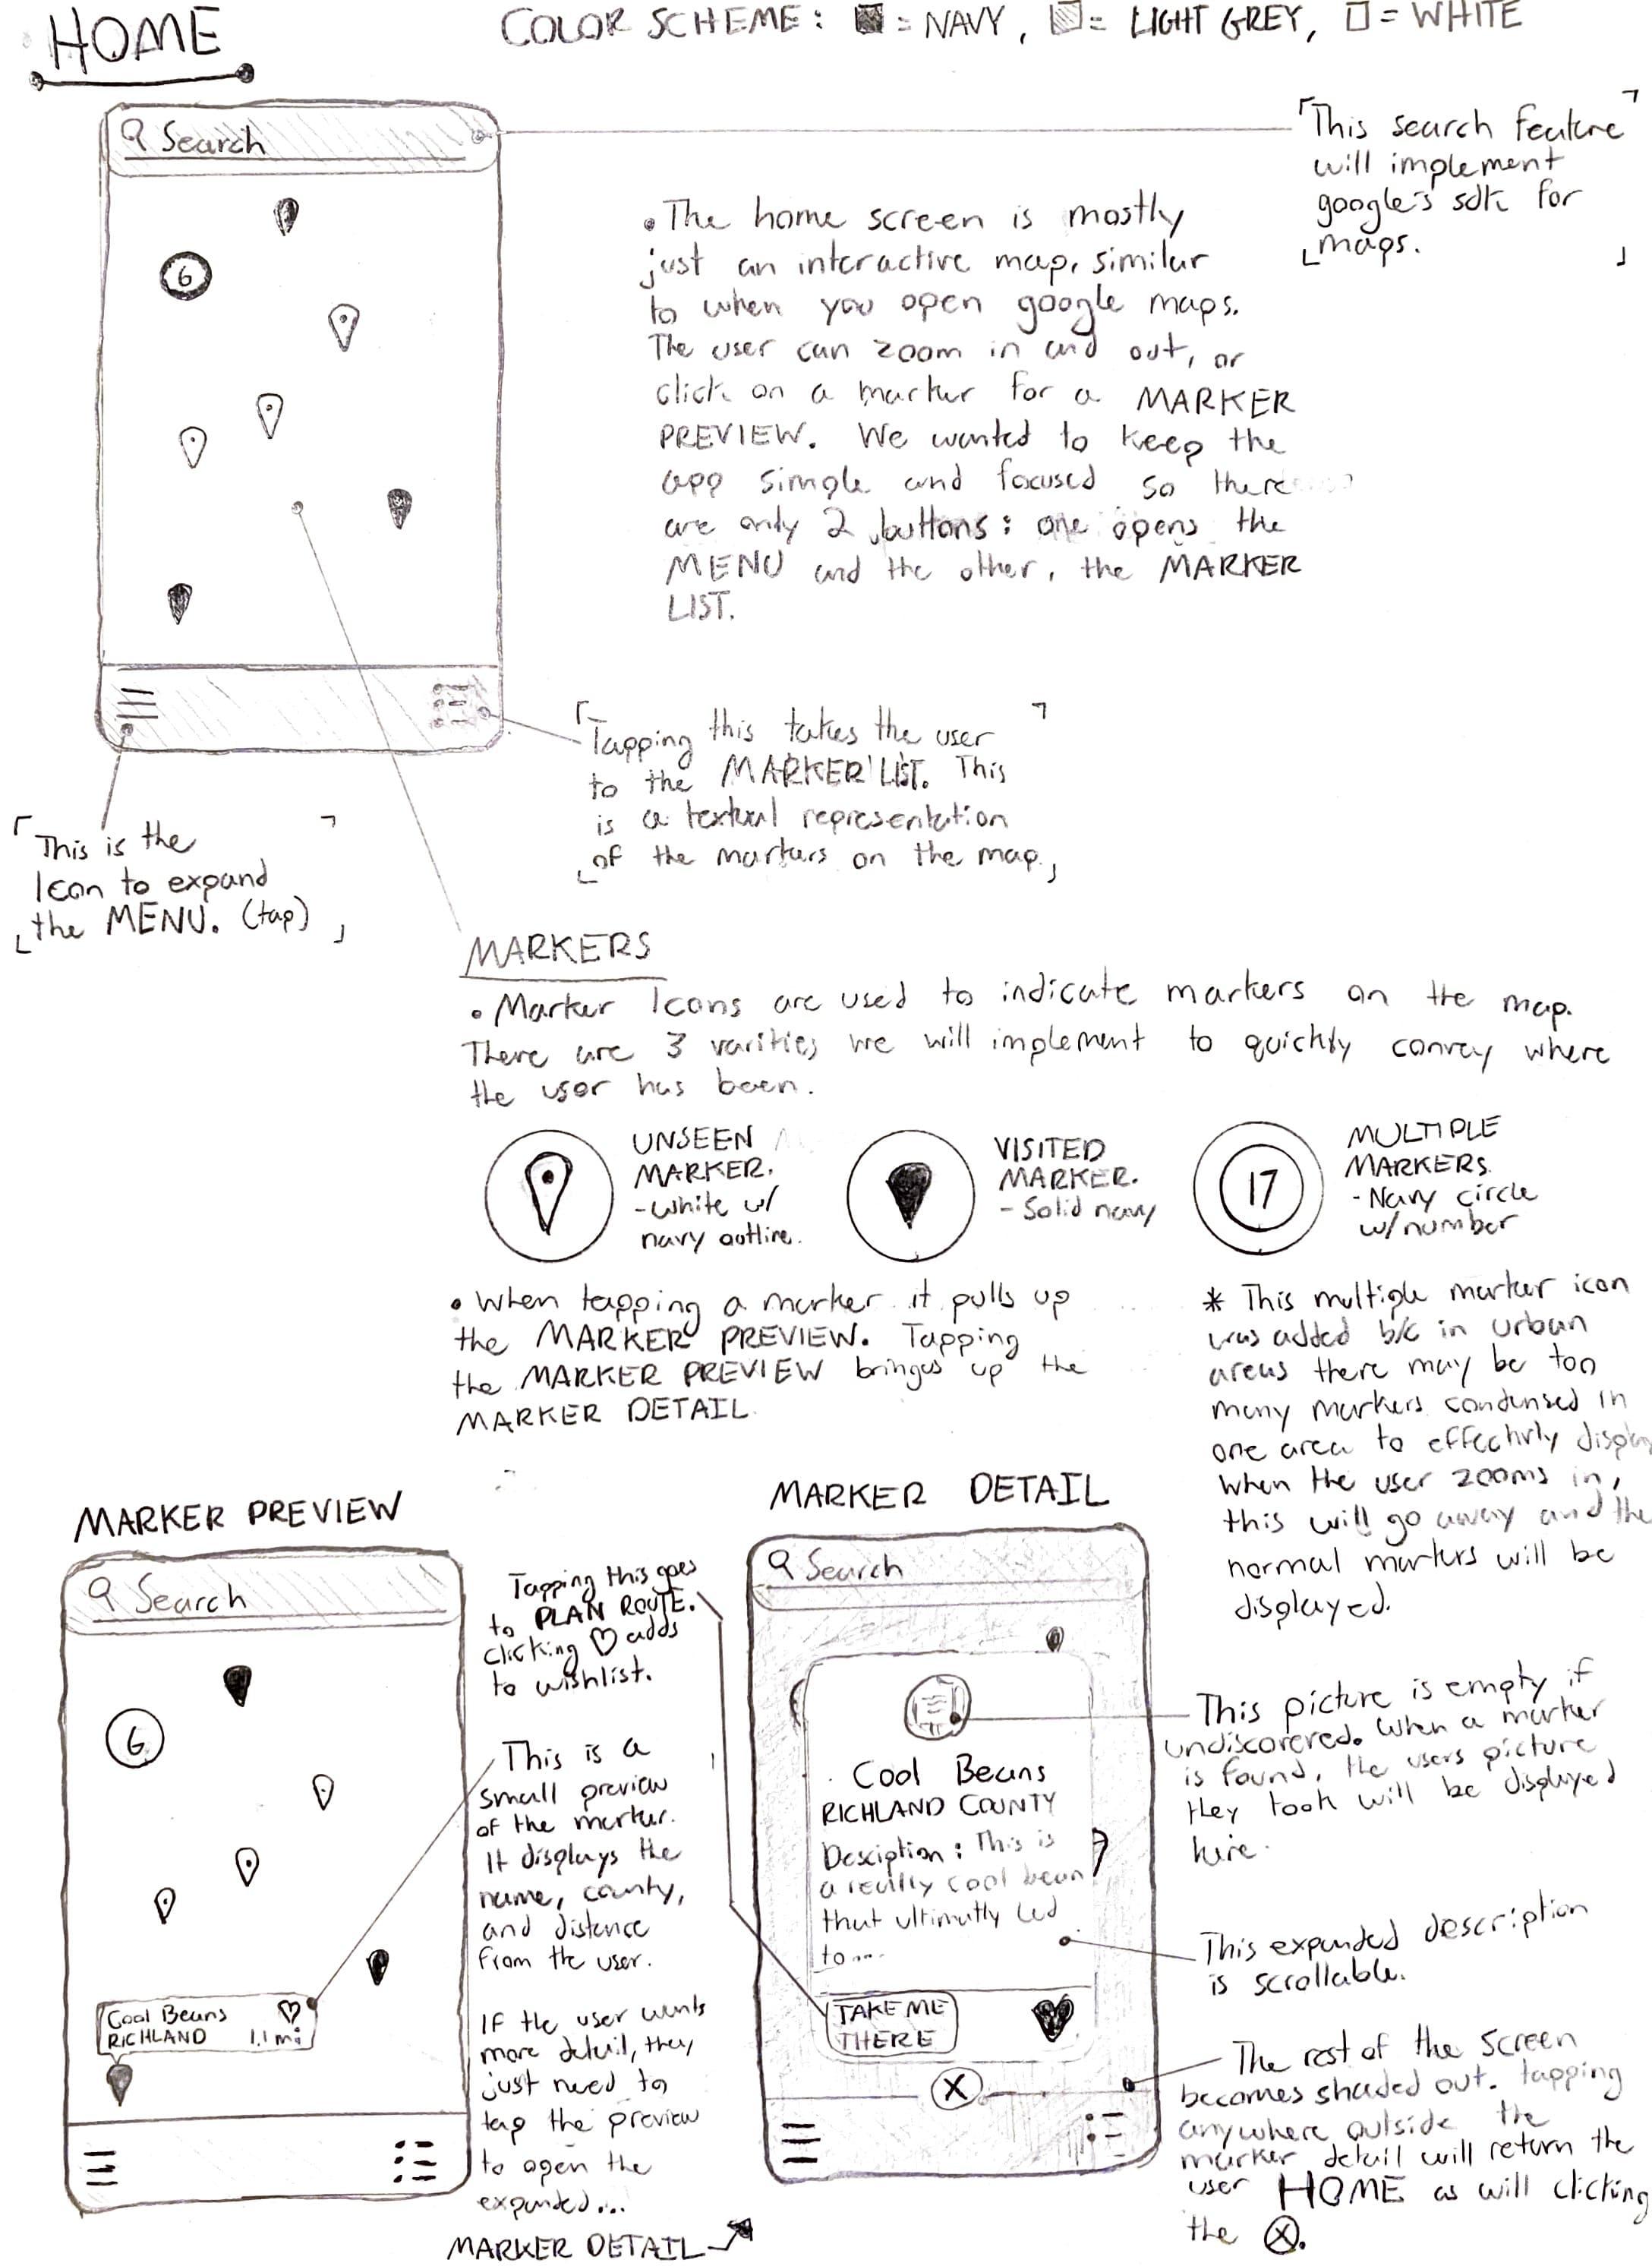 HOME
COLOR SCHEME: = NAVY, = LIGHT GREY, = WHITE
Search
6
This search feature
will implement
google's sdk for
maps.
• The home screen is mostly
just an interactive map, similar
to when you open google maps.
The user can zoom in and out, or
click on a marker for a MARKER
PREVIEW. We wanted to keep the
app simple and focused so there
are only 2 buttons: one opens the
MENU and the other, the MARKER
LIST.
Tapping this takes the user
to the MARKER LIST. This
is a textual representation
of the markers on the map.
This is the
Icon to expand
the MENU. (tap)
MARKERS
• Marker Icons are used to indicate markers on the map.
There are 3 varities we will implement to quickly convey where
the user has been.
UNSEEN
MARKER.
- white w/
navy outline.
VISITED
MARKER.
- Solid navy
17
MULTIPLE
MARKERS.
- Navy circle
w/number
• When tapping a marker it pulls up
the MARKER PREVIEW. Tapping
the MARKER PREVIEW brings up the
MARKER DETAIL.
* This multiple marker icon
was added b/c in urban
areas there may be too
many markers condensed in
one area to effectivly display
when the user zooms in,
this will go away and the
normal markers will be
displayed.
MARKER PREVIEW
Search
6
Cool Beans
RICHLAND 1.1 mi
Tapping this goes
to PLAN ROUTE.
clicking ♡ adds
to wishlist.
This is a
small preview
of the marker.
It displays the
name, county,
and distance
from the user.
If the user wants
more detail, they
just need to
tap the preview
to open the
expanded...
MARKER DETAIL
MARKER DETAIL
Search
Cool Beans
RICHLAND COUNTY
Desciption: This is
a really cool bean
that ultimatly led
to...
TAKE ME
THERE
X
This picture is empty if
undiscovered. When a marker
is found, the users picture
they took will be displayed
here.
This expanded description
is scrollable.
The rest of the screen
becomes shaded out. tapping
anywhere outside the
marker detail will return the
user HOME as will clicking
the ⓧ.